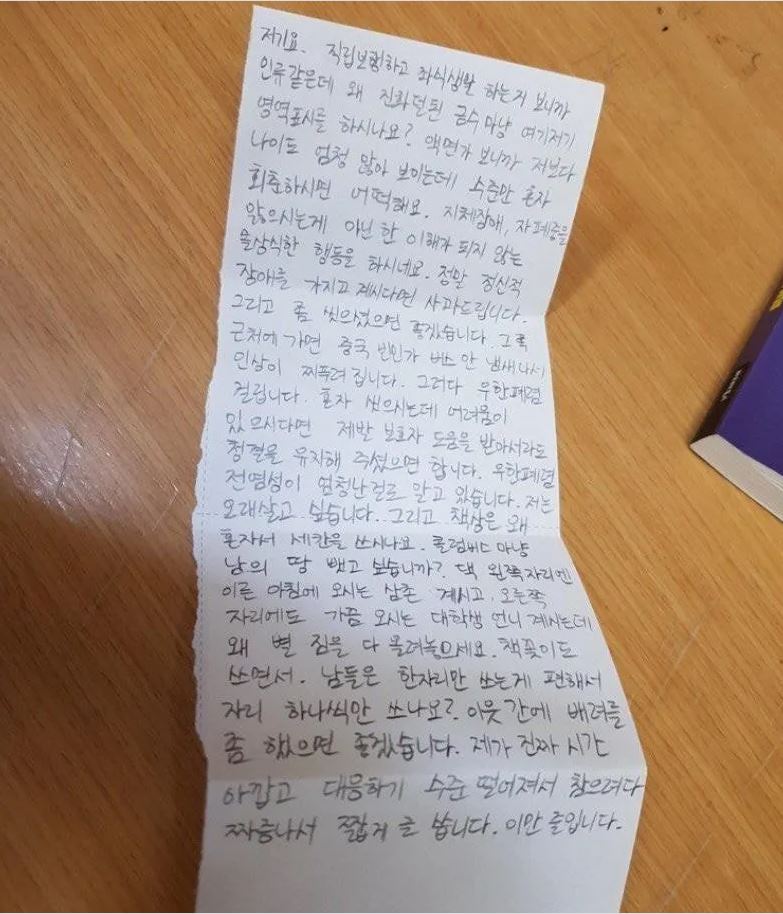 저기요. 직립보행하고 좌식생활 하는거 보니까
인류같은데 왜 진화덜된 금수마냥 여기저기
영역표시를 하시나요? 액면가 보니까 저보다
나이도 엄청 많아 보이는데 수준만 혼자
회춘하시면 어떡해요. 지체장애, 자폐증을
앓으시는게 아닌 한 이해가 되지 않는
몰상식한 행동을 하시네요. 정말 정신적
장애를 가지고 계시다면 사과드립니다.
그리고 좀 씻으셨으면 좋겠습니다. 그쪽
근처에 가면 중국 빈민가 버스 안 냄새나서
인상이 찌푸려 집니다. 그러다 우한폐렴
걸립니다. 혼자 씻으시는데 어려움이
있으시다면 제발 보호자 도움을 받아서라도
청결을 유지해 주셨으면 합니다. 우한폐렴
전염성이 엄청난걸로 알고 있습니다. 저는
오래살고 싶습니다. 그리고 책상은 왜
혼자서 세칸을 쓰시나요. 콜럼버스 마냥
남의 땅 뺏고 싶습니까? 댁 왼쪽자리엔
이른 아침에 오시는 삼촌 계시고, 오른쪽
자리에도 가끔 오시는 대학생 언니 계시는데
왜 별 짐을 다 올려놓으세요. 책꽂이도
쓰면서. 남들은 한자리만 쓰는게 편해서
자리 하나씩만 쓰나요? 이웃 간에 배려를
좀 했으면 좋겠습니다. 제가 진짜 시간
아깝고 대응하기 수준 떨어져서 참으려다
짜증나서 짧게 글 씁니다. 이만 줄입니다.